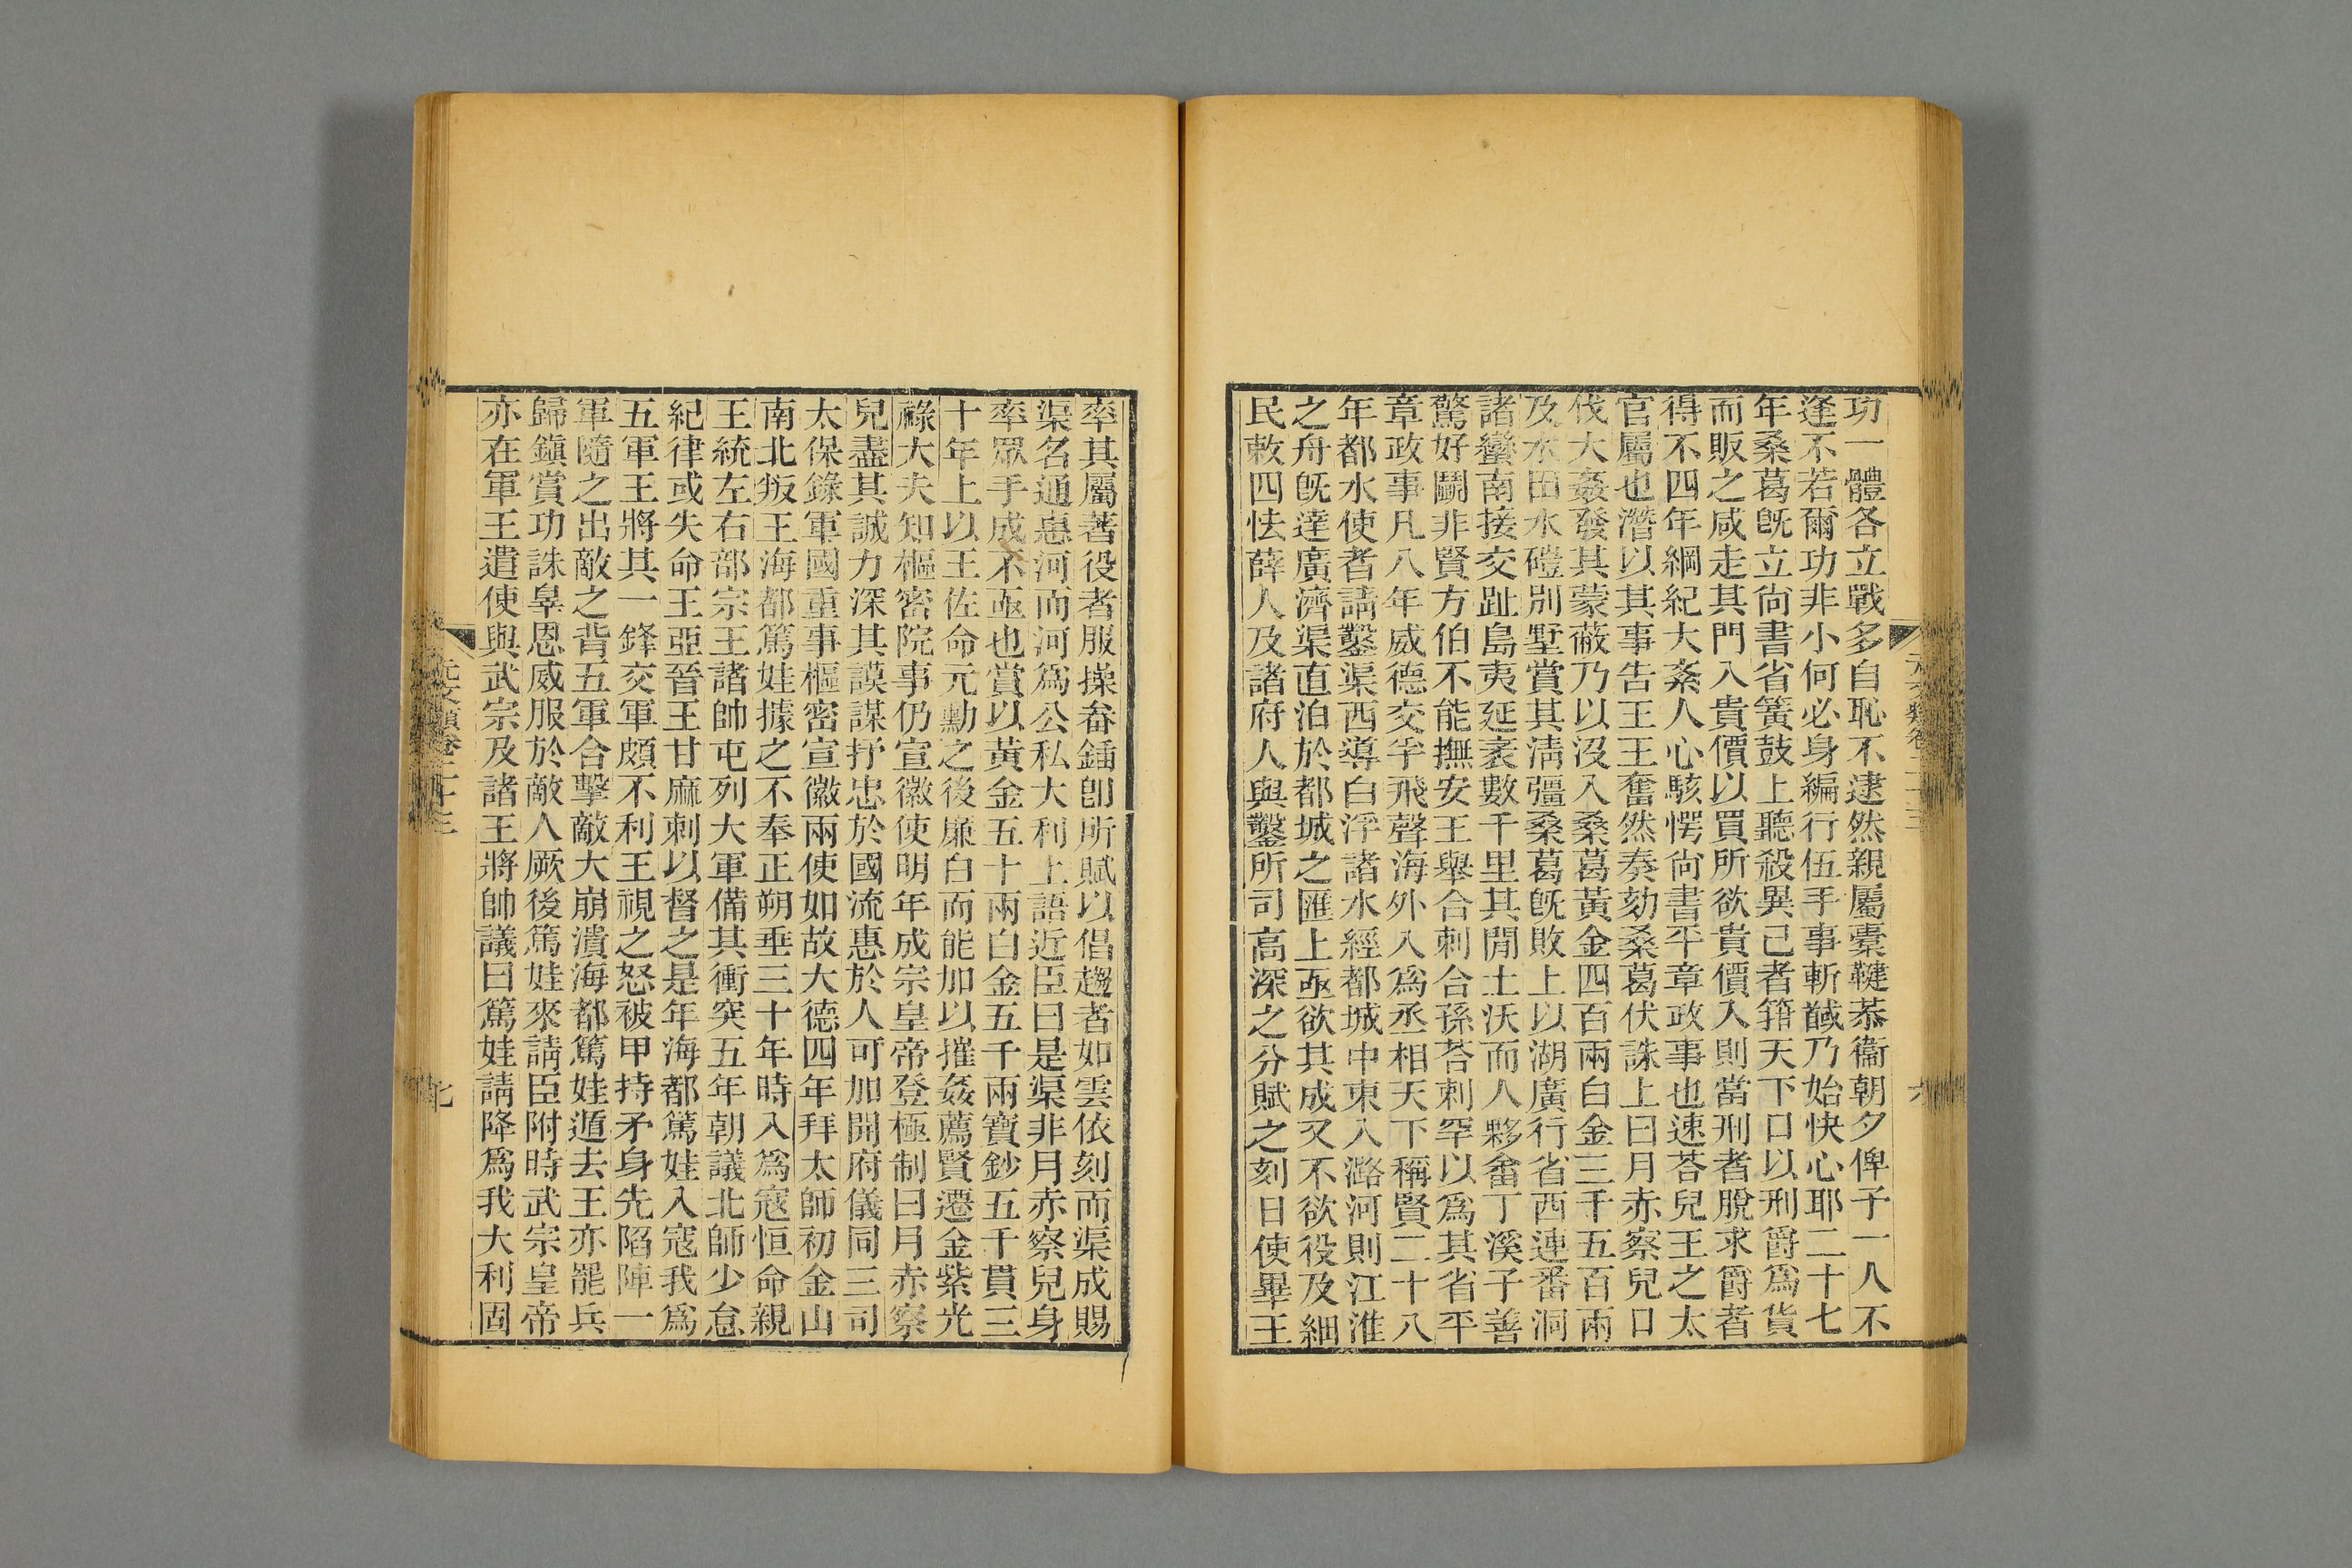 功一體各立戰多自恥不逮然親屬櫜鞬恭衞朝夕俾子一人不
逢不若爾功非小何必身編行伍手事斬馘乃始快心耶二十七
年桑葛旣立尙書省簧鼓上聽殺異己者箝天下口以刑爵爲貨
而販之咸走其門入貴價以買所欲貴價入則當刑者脫求爵者
得不四年綱紀大紊人心駭愕尙書平章政事也速荅兒王之太
官屬也潛以其事告王王奮然奏劾桑葛伏誅上曰月赤察兒口
伐大姦發其蒙蔽乃以沒入桑葛黃金四百兩白金三千五百兩
及水田水磑別墅賞其淸彊桑葛旣敗上以湖廣行省西連番洞
諸蠻南接交趾島夷延袤數千里其閒土沃而人夥畬丁溪子善
驚好鬭非賢方伯不能撫安王舉合刺合孫荅刺罕以爲其省平
章政事凡八年威德交孚飛聲海外入爲丞相天下稱賢二十八
年都水使者請鑿渠西導白浮諸水經都城中東入潞河則江淮
之舟旣達廣濟渠直泊於都城之匯上亟欲其成又不欲役及細
民敕四怯薛人及諸府人與鑿所司高深之分賦之刻日使畢王
率其屬著役者服操畚鍤卽所賦以倡趨者如雲依刻而渠成賜
渠名通惠河而河爲公私大利上語近臣曰是渠非月赤察兒身
率眾手成不亟也賞以黃金五十兩白金五千兩寶鈔五千貫三
十年上以王佐命元勳之後廉白而能加以摧姦薦賢遷金紫光
祿大夫知樞密院事仍宣徽使明年成宗皇帝登極制曰月赤察
兒盡其誠力深其謨謀抒忠於國流惠於人可加開府儀同三司
太保錄軍國重事樞密宣徽兩使如故大德四年拜太師初金山
南北叛王海都篤娃據之不奉正朔垂三十年時入爲寇恒命親
王統左右部宗王諸帥屯列大軍備其衝突五年朝議北師少怠
紀律或失命王亞晉王甘麻刺以督之是年海都篤娃入寇我爲
五軍王將其一鋒交軍頗不利王視之怒被甲持矛身先陷陣一
軍隨之出敵之背五軍合擊敵大崩潰海都篤娃遁去王亦罷兵
歸鎭賞功誅辠恩威服於敵人厥後篤娃來請臣附時武宗皇帝
亦在軍王遣使與武宗及諸王將帥議曰篤娃請降爲我大利固
元文類卷二十三
七